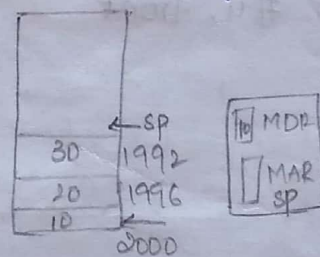 SP
30 1992
20 1996
10
2000
10 MDR
MAR
SP